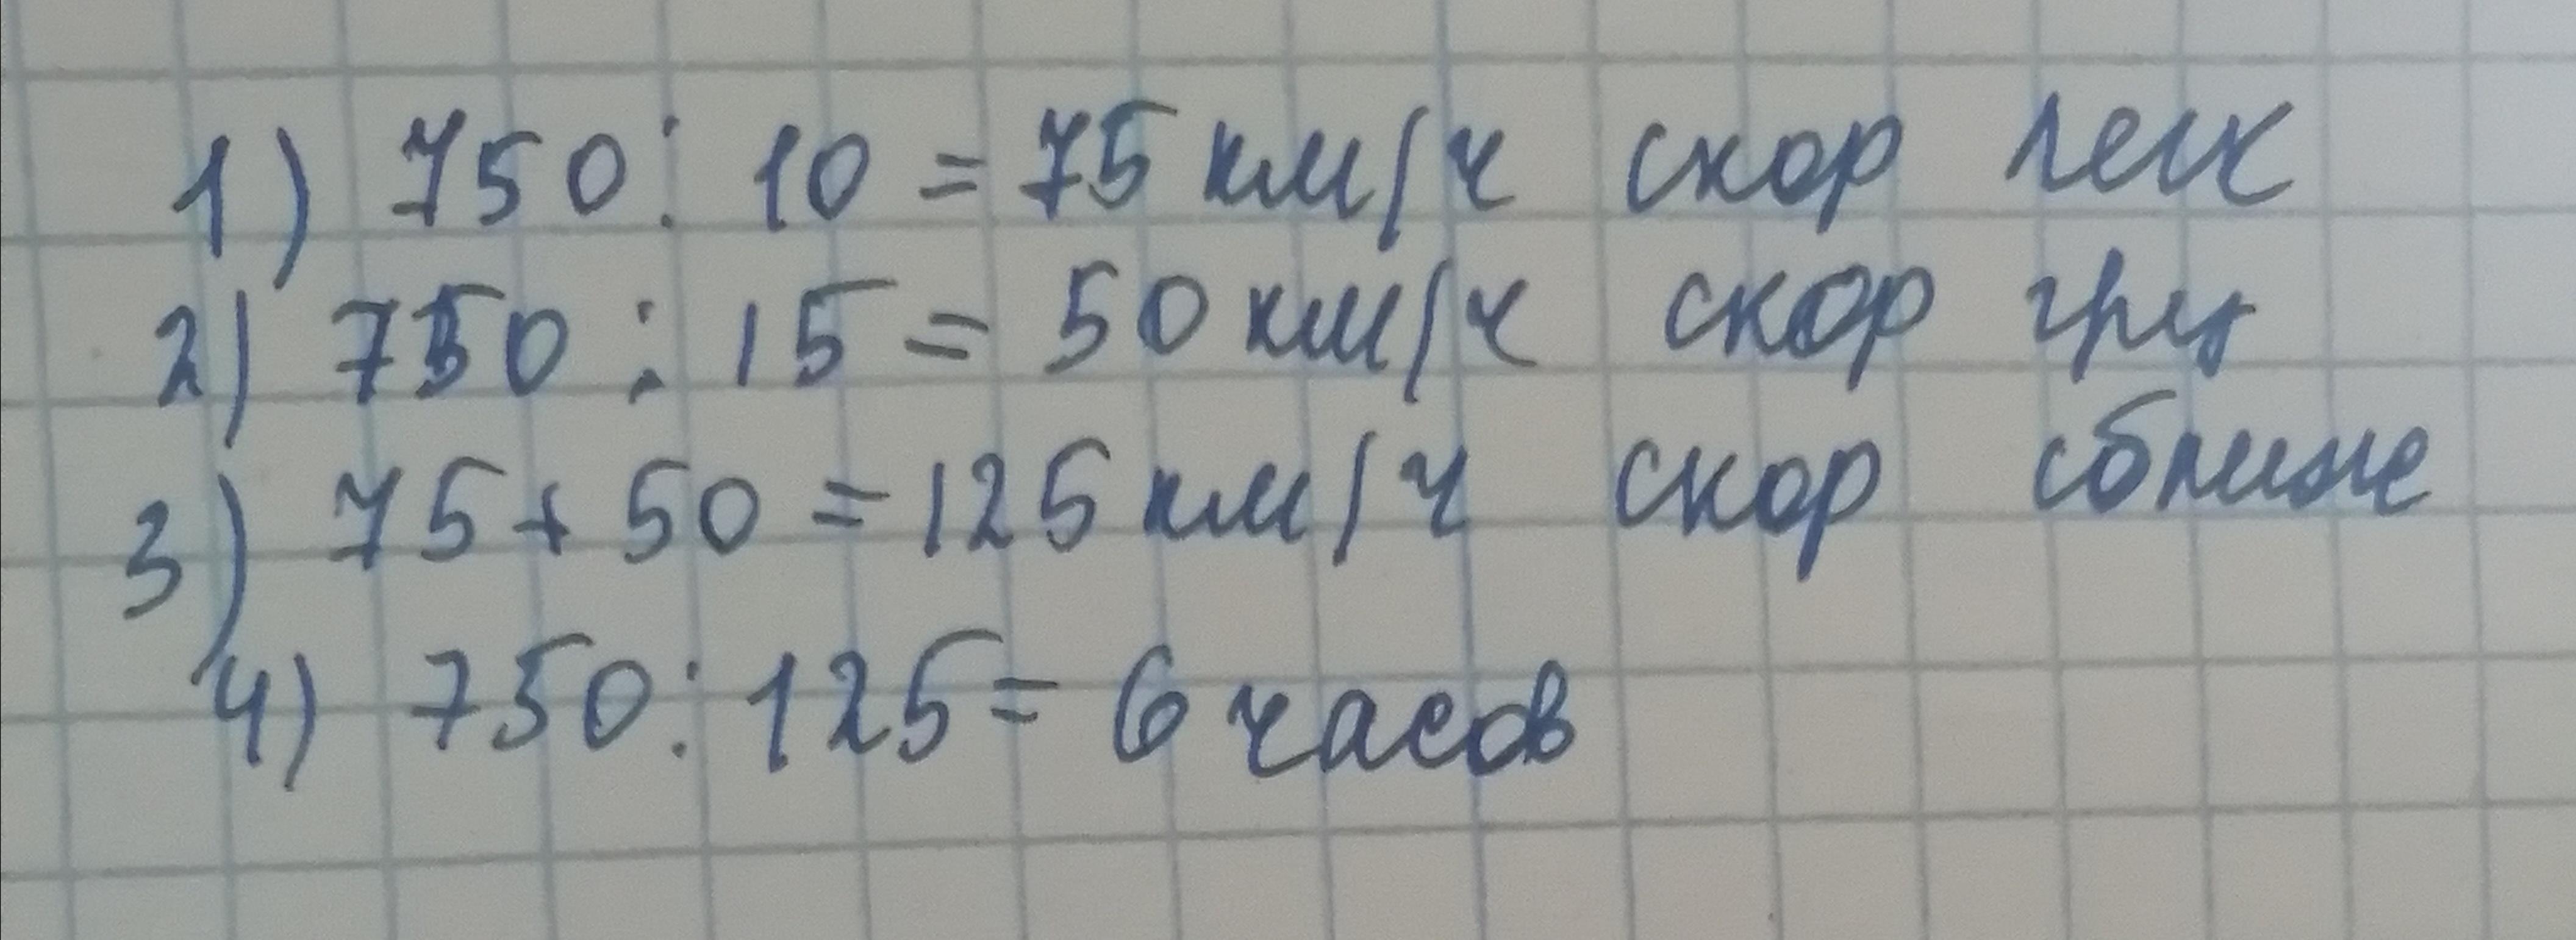 1) 750 : 10 = 75 км/ч скор легк
2) 750 : 15 = 50 км/ч скор груз
3) 75 + 50 = 125 км/ч скор сближе
4) 750 : 125 = 6 часов